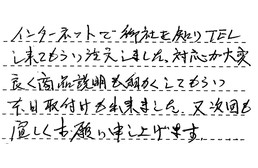 インターネットで御社を知りTEL
し来てもらい注文しました。対応が大変
良く商品説明も細かくしてもらい
本日取付けも出来ました。又次回も
宜しくお願い申し上げます。